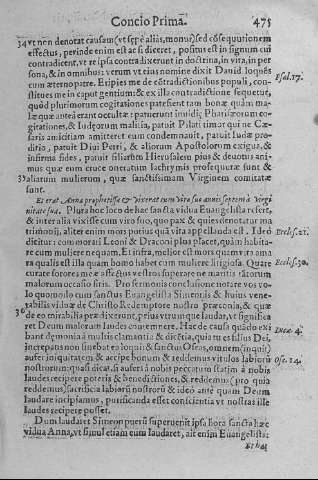 Concio Prima. 475
34 vt non denotat causam (vt sepè aliàs, monui) sed cõsequutionem
effectus, perinde enim est ac si diceret, positus est in signum cui
contradicent, vt re ipsa contradixerunt in doctrina, in vita, in per
sona, & in omnibus: verum vt eius nomine dixit Dauid loques
cum æterno patre. Eripies me de cõtradictionibus populi, con- Psal. 17.
stitues me in caput gentium: & ex illa contradictione sequetur,
quòd plurimorum cogitationes patefient tam bonæ quàm ma-
læ quæ anteà erant occultæ: patuerunt inuidi; Pharisæorum co-
gitationes, & Iudęorum malitia, patuit Pilati timor qui ne Cæ-
saris amicitiam amitteret eum condemnauit, patuit Iudæ pro-
ditio, patuit Diui Petri, & aliorum Apostolorum exigua, &
infirma fides, patuit filiarũ Hierusalem pius & deuotus ani-
mus quæ eum cruce oneratum lachrymis prosequutæ sunt &
35 aliarum mulierum, quæ sanctissimam Virginem comitatæ
sunt.
Et erat Anna prophetissa & vixerat cum viro suo annis septem à virgi
nitate sua. Plura hoc loco de hac sancta vidua Euangelista refert,
& inter alia vixisse cum viro suo, quo pax & quies denotatur ma
trimonij, aliter enim mors potiùs quà vita appellanda est. Ideò Eccles. 25.
dicitur: commorari Leoni & Draconi plus placet, quàm habita-
re cum muliere nequam. Et infrà, melior est mors quam vita ama
ra qualis est illa quam homo habet cum muliere litigiosa. Quare Eccles. 30.
curate sorores meæ affectus vestros superare ne maritis vestrorum
malorum occasio sitis. Pro sermonis conclusione notare vos vo-
lo quomodo cum sanctus Euangelista Simeonis & huius vene-
rabilis viduæ de Christo Redemptore nostro præconia, & quæ
36 de eo mirabilia prædixerunt, priùs vtrumque laudat, vt significa
ret Deum malorum laudes contemnere. Hac de causa quãdo exi
bant dęmonia à multis clamantia & dictia, quia tu es filius Dei, Lucæ 4.
increpans non sinebat ea loqui & sanctus Oseas, omnem (inquit)
aufer iniquitatem & accipe bonum & reddemus vitulos labiorũ Ose. 14.
nostrorum: quasi dicat si aufers à nobis peccatum statim à nobis
laudes recipere poteris & benedictiones, & reddemus (pro quia
reddemus) sacrificia labiorũ nostrorũ & ideò ante quam Deum
laudare incipiamus, purificanda esset conscientia vt nostras ille
laudes recipere posset.
Dum laudaret Simeon puerũ superuenit ipsa hora sancta hæc
vidua Anna, vt simul etiam eum laudaret, ait enim Euangelista: